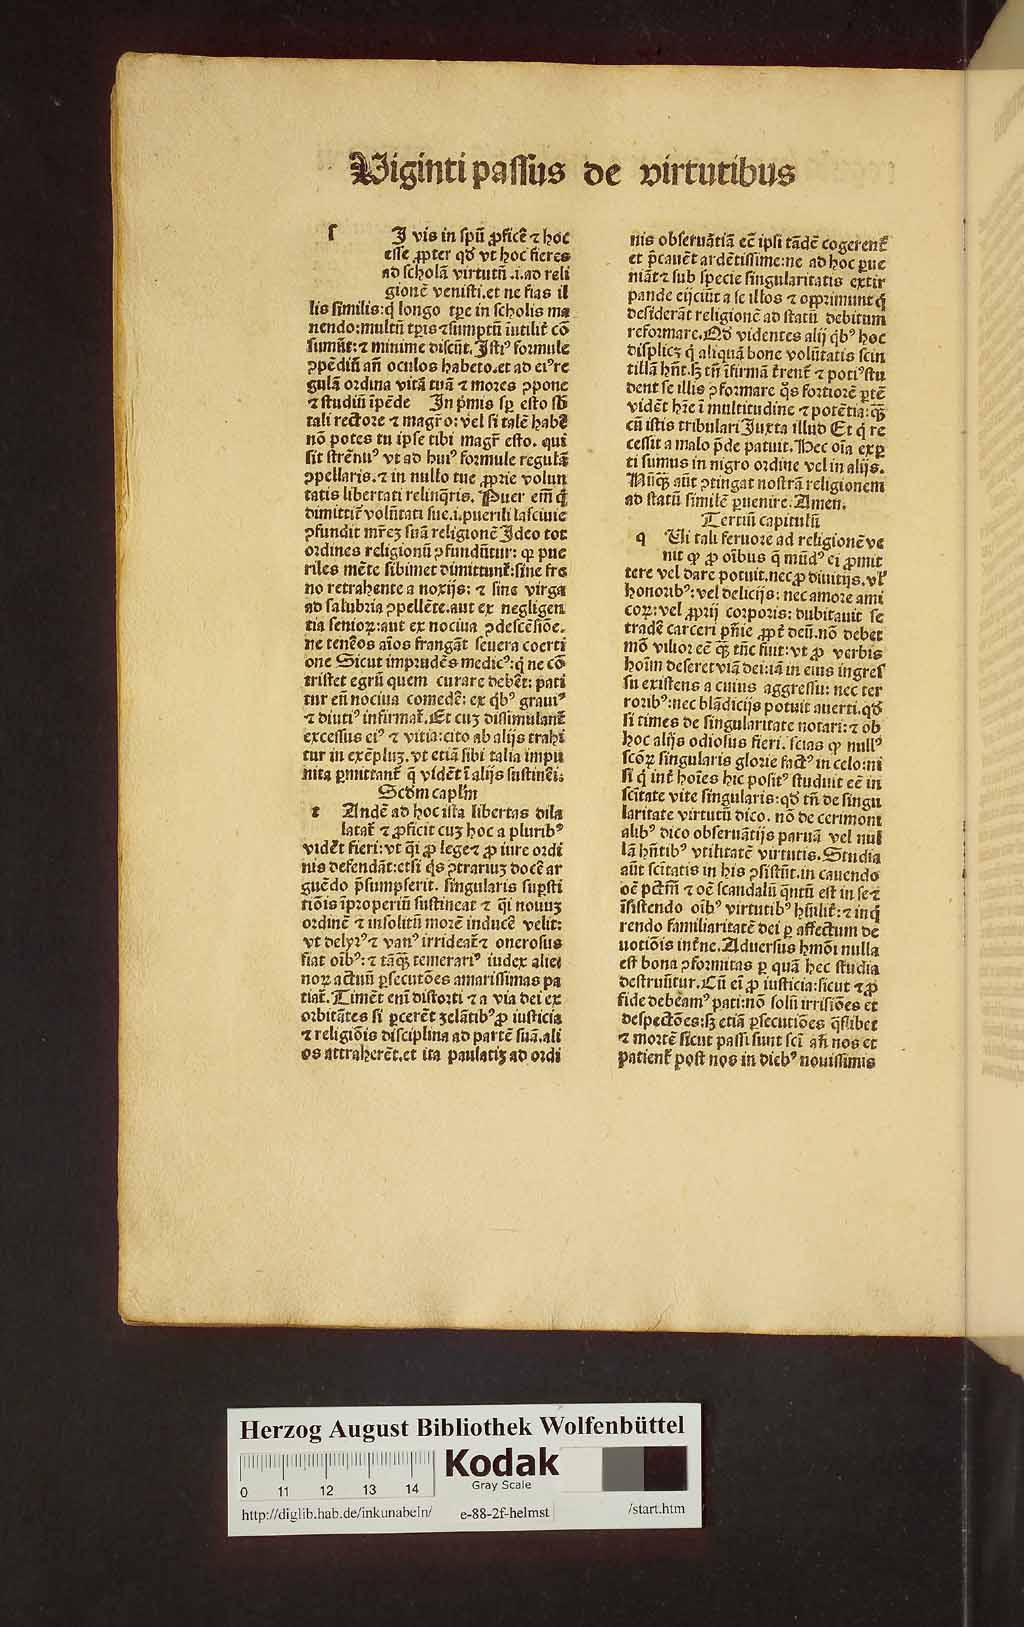 Viginti passus de virtutibus
ſ I vis in ſpū ꝓficē ⁊ hoc
eſſe ꝓpter qḋ vt hoc fieres
ad ſcholā virtutū .i. ad reli
gionē veniſti. et ne fias il
lis ſimilis: q̄ longo tꝑe in ſcholis ma
nendo: multū tꝑis ⁊ ſumptū īutilit̄ cō
ſumūt: ⁊ minime diſcūt. Iſtiꝰ formule
ↄpēdiū añ oculos habeto. et ad eiꝰ re
gulā ordina vitā tuā ⁊ mores ↄpone
⁊ ſtudiū īpēde In pͥmis ſꝑ eſto ſb̄
tali rectore ⁊ magr̄o: vel ſi talē habē
nō potes tu ipſe tibi magr̄ eſto. qui
ſit ſtrēnuꝰ vt ad huiꝰ formule regulā
ↄpellaris. ⁊ in nullo tue ꝓprie volun
tatis libertati relinq̄ris. Puer em̄ q̄
dimittit̄ volūtati ſue .i. puerili laſciuie
ↄfundit mr̄eꝫ ſuā religionē Ideo tot
ordines religionū ↄfundūtur: ꝙ pue
riles mēte ſibimet dimittunt̄: ſine fre
no retrahente a noxijs: ⁊ ſine virga
ad ſalubria ↄpellēte. aut ex negligen
tia ſenioꝝ: aut ex nociua ↄdeſcēſiōe.
ne tenēos aīos frangāt ſeuera coerti
one Sicut imprudēs medicꝰ: q̄ ne cō
triſtet egrū quem curare debēt: pati
tur eñ nociua comedē: ex qͥbꝰ grauiꝰ
⁊ diutiꝰ infirmat̄. Et cuꝫ diſſimulant̄
exceſſus eiꝰ ⁊ vitia: cito ab alijs trahi
tur in exēpluꝫ. vt etiā ſibi talia impu
nita ꝑmittant̄ q̄ vidēt ī alijs ſuſtineri;
Scḋm caplm̄
t Andē ad hoc iſta libertas dila
latat̄ ⁊ ꝓficit cuꝫ hoc a pluribꝰ
vidēt fieri: vt q̄i ꝓ lege ⁊ ꝓ iure ordi
nis defendāt: etſi q̄s ↄtrariuꝫ docē ar
guēdo p̄ſumpſerit. ſingularis ſupꝑſti
tiōis īproperiū ſuſtineat ⁊ q̄i nouuꝫ
ordinē ⁊ inſolitū morē inducē velit:
vt delyrꝰ ⁊ vanꝰ irrideat̄ ⁊ oneroſus
fiat oībꝰ: ⁊ tāꝙ̄ temerariꝰ iudex alie
noꝝ actuū ꝑſecutōes amariſſimas pa
tiat̄. Timēt enī diſtorti ⁊ a via dei ex
orbitātes ſi ꝑcerēt zelātibꝰ ꝓ iuſticia
⁊ religiōis diſciplina ad partē ſuā. ali
os attraherēt. et ita paulatiꝫ ad ordi
nis obſeruātiā eē ipſi tādē cogerent̄
et p̄cauēt ardētiſſime: ne ad hoc ꝑue
niāt ⁊ ſub ſpecie ſingularitatis extir
pande eijciūt a ſe illos ⁊ opprimunt q̄
deſiderāt religionē ad ſtatū debitum
reformare. Qḋ videntes alij qͥbꝰ hoc
diſplicꝫ q̄ aliquā bone volūtatis ſcin
tillā hñt. ſꝫ tñ īfirmā t̄rent̄ ⁊ potiꝰ ſtu
dent ſe illis ↄformare q̄s fortiorē ꝑtē
vidēt hr̄e ī multitudine ⁊ potētia: ꝙ̄
cū iſtis tribulari Iuxta illud Et q̄ re
ceſſit a malo p̄de patuit. Hec oīa exꝑ
ti ſumus in nigro ordine vel in alijs.
Nūꝙ̄ aūt ↄtingat noſtrā religionem
ad ſtatū ſimilē ꝑuenire. Amen.
Tertiū capitulū
q Ui tali feruore ad religionē ve
nit ꝙ ꝓ oībus q̄ mūdꝰ ei ꝓmit
tere vel dare potuit. nec ꝓ diuitijs. vl̄
honoribꝰ: vel delicijs: nec amore ami
coꝝ: vel ꝓprij corporis: dubitauit ſe
tradē carceri pn̄ie ꝓpt̄ deū. nō debet
mō vilior eē ꝙ̄ tūc fuit: vt ꝓ verbis
hoīm deſeret viā dei: iā in eius ingreſ
ſu exiſtens a cuius aggreſſu: nec ter
roribꝰ: nec blādicijs potuit auerti. qḋ
ſi times de ſingularitate notari: ⁊ ob
hoc alijs odioſus fieri. ſcias ꝙ nullꝰ
ſcōꝝ ſingularis glorie factꝰ in celo: ni
ſi q̄ int̄ hoīes hic poſitꝰ ſtuduit eē in
ſcītate vite ſingularis: qḋ tñ de ſingu
laritate virtutū dico. nō de cerimoni
alibꝰ dico obſeruātijs paruā vel nul
lā hñtibꝰ vtilitatē virtutis. Studia
aūt ſcītatis in his ↄſiſtūt. in cauendo
oē pctm̄ ⁊ oē ſcandalū q̄ntū eſt in ſe ⁊
īſiſtendo oībꝰ virtutibꝰ hūilit̄: ⁊ inq̄
rendo familiaritatē dei ꝑ affectum de
uotiōis int̄ne. Aduerſus hm̄oi nulla
eſt bona ↄformitas ꝑ quā hec ſtudia
deſtruūtur. Cū eī ꝓ iuſticia: ſicut ⁊ ꝓ
fide debeamꝰ pati: nō ſolū irriſiōes et
deſpectōes: ſꝫ etiā ꝑſecutiōes q̄ſlibet
⁊ mortē ſicut paſſi ſunt ſcī añ nos et
patient̄ poſt nos in diebꝰ nouiſſimis
Herzog August Bibliothek Wolfenbüttel
Kodak
Gray Scale
0 11 12 13 14
http://diglib.hab.de/inkunabeln/ e-88-2f-helmst /start.htm